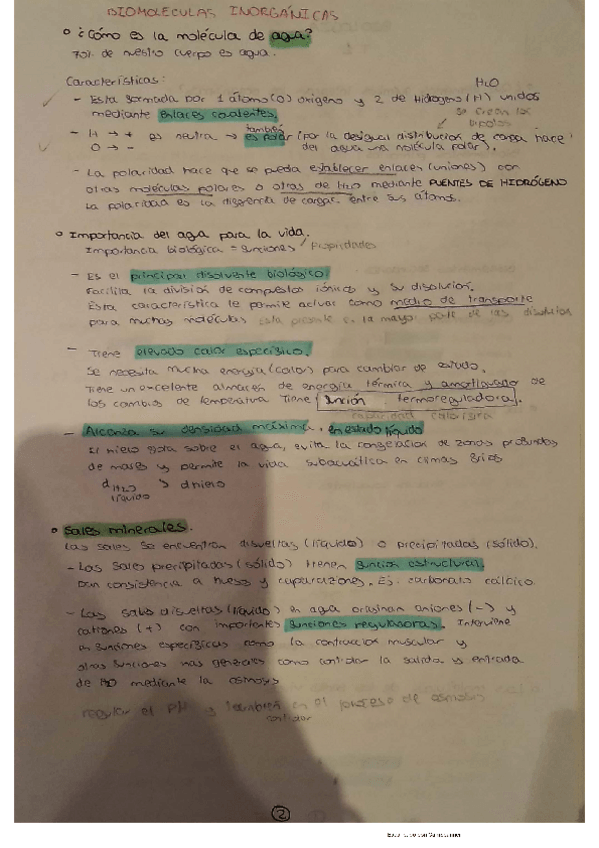 BIOMOLECULAS INORGÁNICAS
° ¿Cómo es la molécula de agua?
70% de nuestro cuerpo es agua.
Características:
H2O
- Esta formada por 1 átomo (O) oxígeno y 2 de Hidrógeno (H) unidos
mediante enlaces covalentes.
se crean los
dipolos
también
- H → + es neutra → es polar (por la desigual distribución de carga hace
O → - del agua una molécula polar).
- La polaridad hace que se pueda establecer enlaces (uniones) con
otras moléculas polares o otras de H2O mediante PUENTES DE HIDRÓGENO
La polaridad es la diferencia de cargas. entre sus átomos.
° Importancia del agua para la vida.
Importancia biológica = funciones / Propiedades
- Es el principal disolvente biológico.
Facilita la división de compuestos iónicos y su disolución.
Esta característica le permite actuar como medio de transporte
para muchas moléculas Esta presente en la mayor parte de las disolucion
- Tiene elevado calor específico.
Se necesita mucha energía (calor) para cambiar de estado.
Tiene un excelente almacen de energía térmica y amortiguador de
los cambios de temperatura Tiene función termoreguladora.
capacidad calorífica
- Alcanza su densidad máxima, en estado líquido
El hielo flota sobre el agua, evita la congelación de zonas profundas
de mares y permite la vida subacuática en climas fríos
d H2O > d hielo
líquido
° Sales minerales.
Las sales se encuentran disueltas (líquido) o precipitadas (sólido).
- Las Sales precipitadas (sólido) tienen función estructural.
Dan consistencia a huesos y caparazones. Ej. carbonato cálcico.
- Las sales disueltas (líquido) en agua originan aniones (-) y
cationes (+) con importantes funciones reguladoras. Interviene
en funciones específicas como la contracción muscular y
otras funciones mas generales como controlar la salida y entrada
de H2O mediante la osmosis
regular el pH y también en el proceso de osmosis
controlar
2